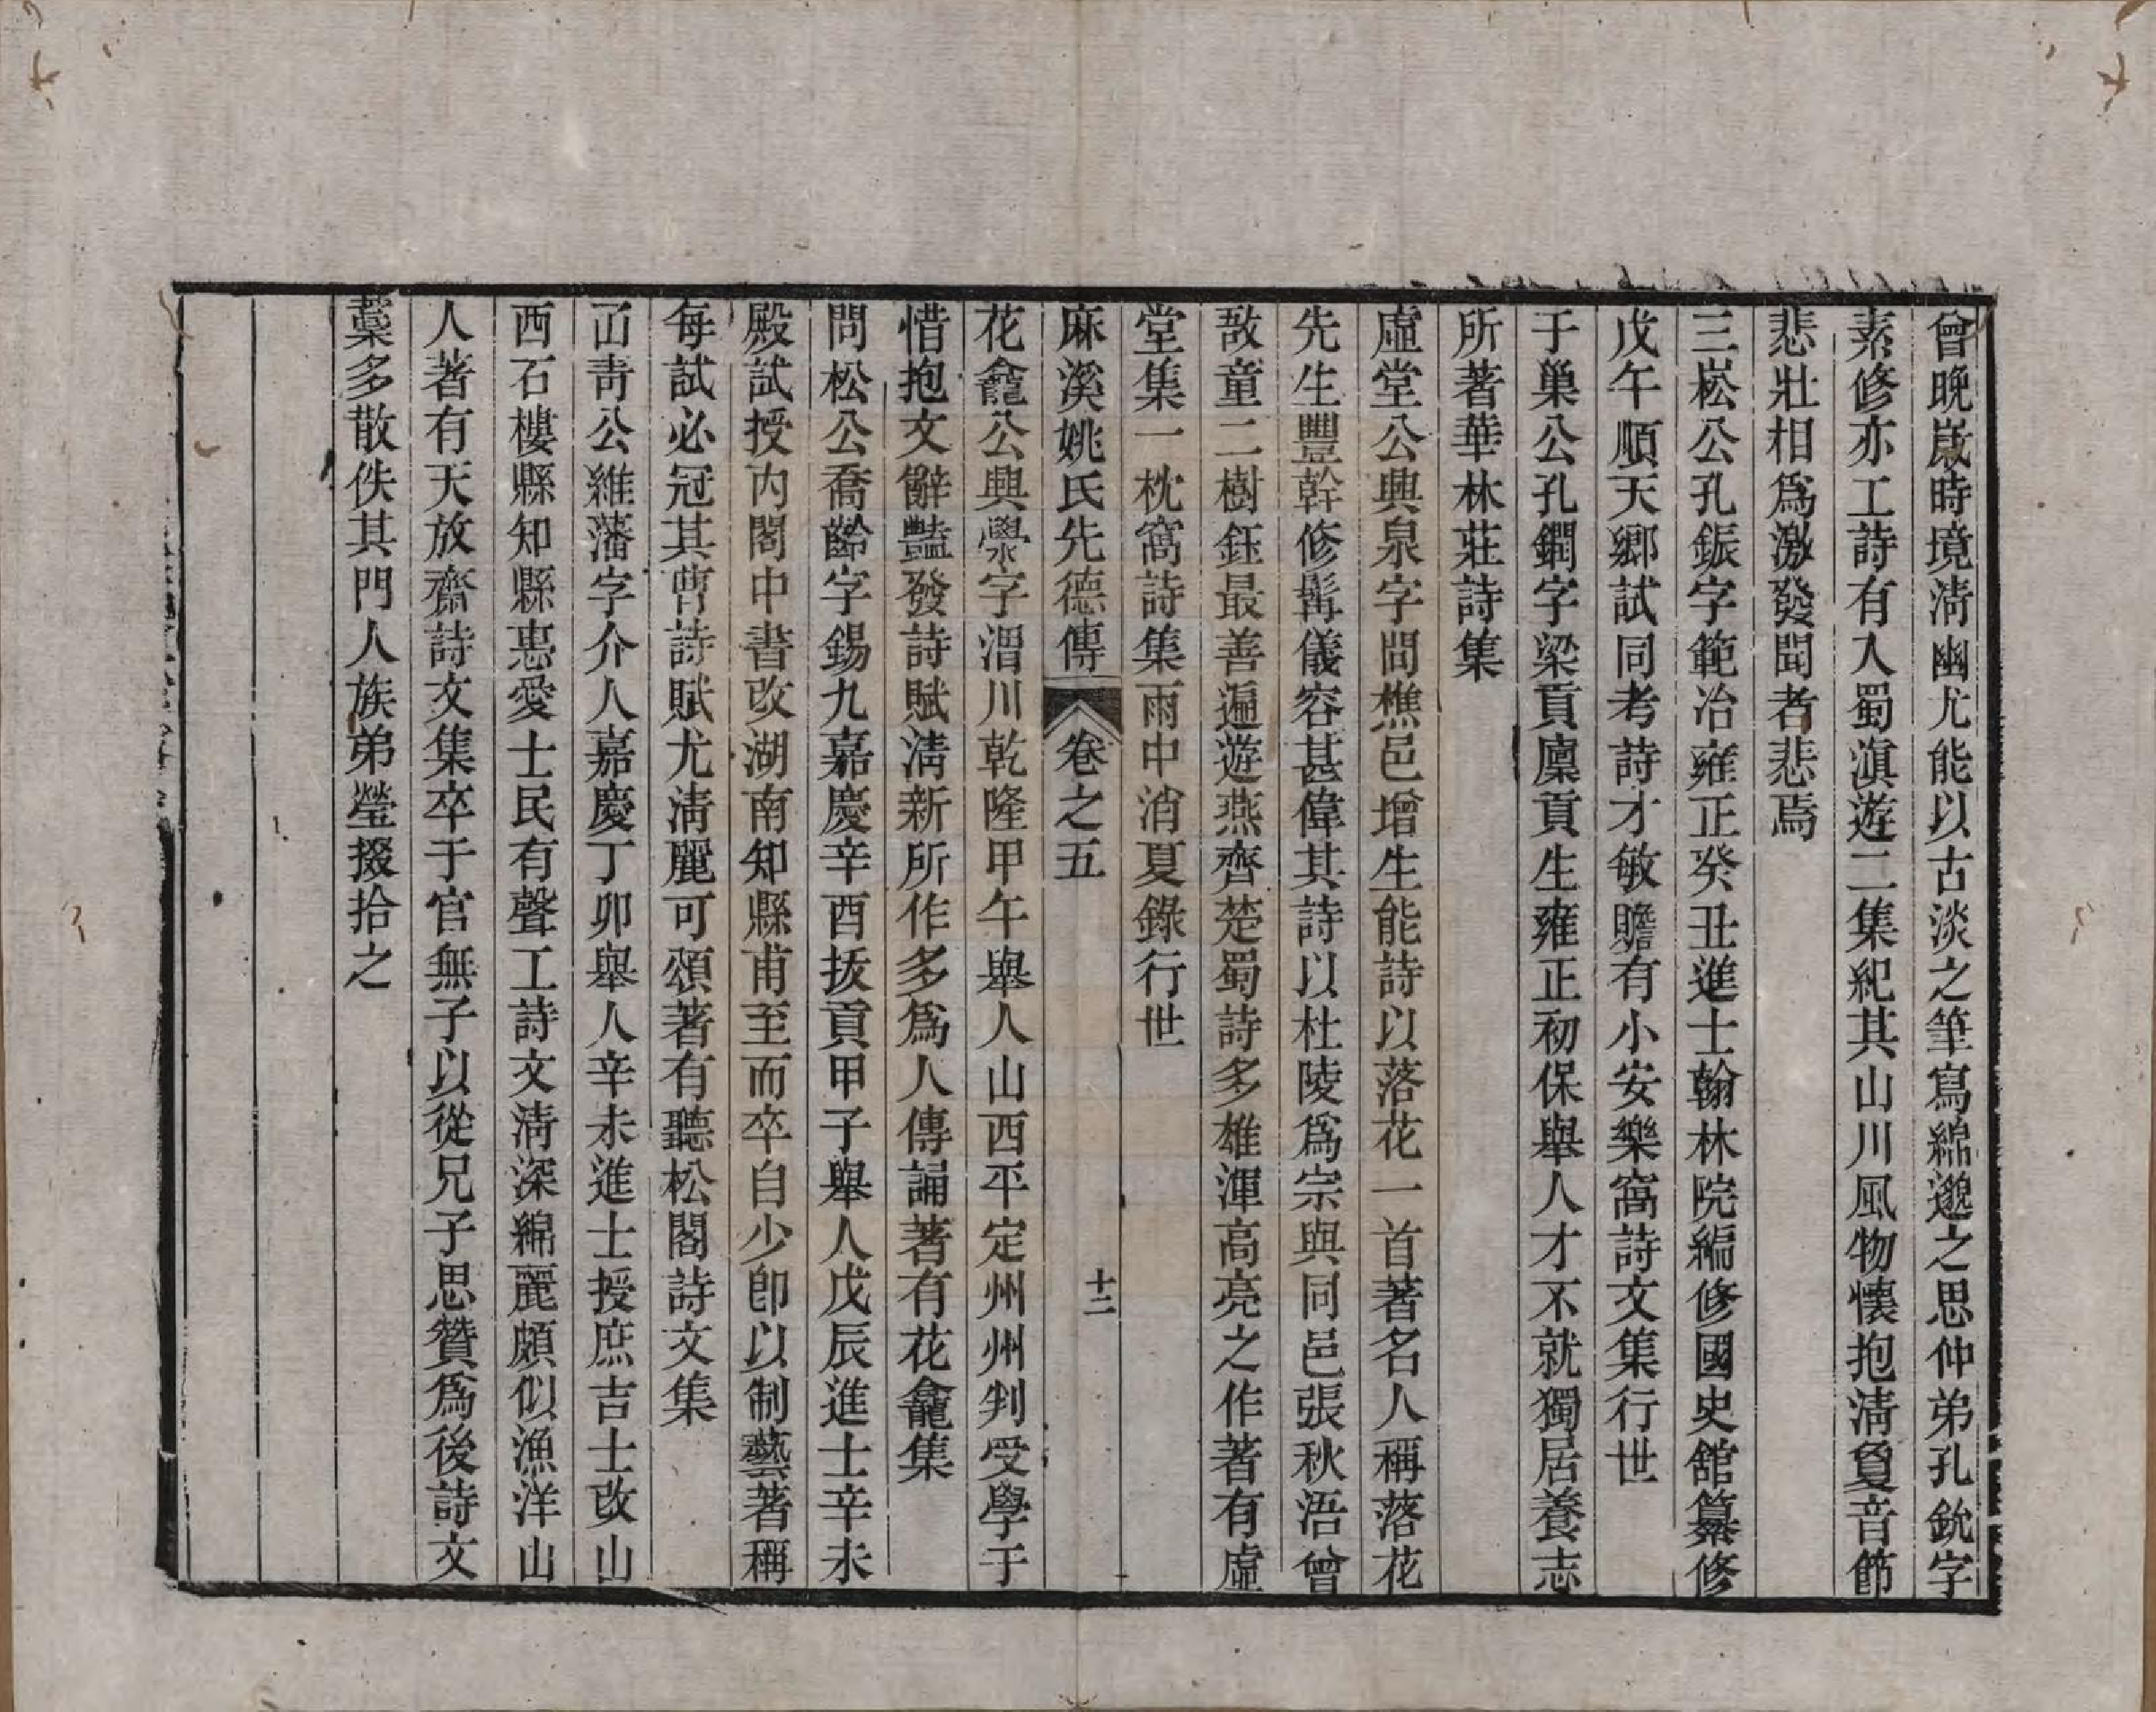 曾晚嵗時境淸幽尤能以古淡之筆寫綿邈之思仲弟孔鈗字
素修亦工詩有入蜀滇遊二集紀其山川風物懷抱淸夐音節
悲壯相爲激發聞者悲焉
三崧公孔鋠字範冶雍正癸丑進士翰林院編修國史舘纂修
戊午順天鄕試同考詩才敏贍有小安樂窩詩文集行世
于巢公孔鐗字梁貢廩貢生雍正初保舉人才不就獨居養志
所著華林莊詩集
虛堂公興泉字問樵邑增生能詩以落花一首著名人稱落花
先生豐幹修髯儀容甚偉其詩以杜陵爲宗與同邑張秋浯曾
敔童二樹鈺最善遍遊燕齊楚蜀詩多雄渾高亮之作著有虛
堂集一枕窩詩集雨中消夏錄行世
麻溪姚氏先德傳 卷之五 十二
花龕公興㶅字渭川乾隆甲午舉人山西平定州州判受學于
惜抱文辭豔發詩賦淸新所作多爲人傳誦著有花龕集
問松公喬齡字錫九嘉慶辛酉拔貢甲子舉人戊辰進士辛未
殿試授內閣中書改湖南知縣甫至而卒自少卽以制藝著稱
每試必冠其曹詩賦尤淸麗可頌著有聽松閣詩文集
㐁靑公維藩字介人嘉慶丁卯舉人辛未進士授庶吉士改山
西石樓縣知縣惠愛士民有聲工詩文淸深綿麗頗似漁洋山
人著有天放齋詩文集卒于官無子以從兄子思贊爲後詩文
藁多散佚其門人族弟瑩掇拾之